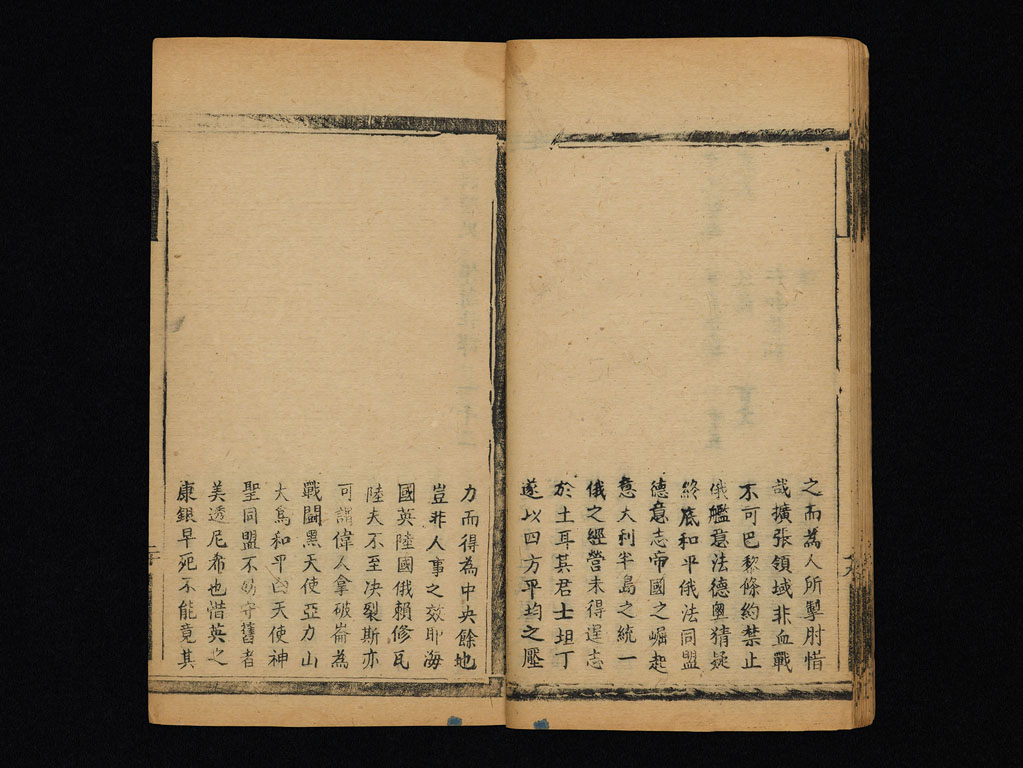 之而為人所掣肘惜
哉擴張領域非血戰
不可巴黎條約禁止
俄艦意法德奧猜疑
終底和平俄法同盟
德意志帝國之崛起
意大利半島之統一
俄之經營未得逞志
於土耳其君士坦丁
遂以四方平均之壓
力而得為中央餘地
豈非人事之效耶海
國英陸國俄賴修瓦
陸夫不至决裂斯亦
可謂偉人拿破崙為
戰闘黑天使亞力山
大為和平白天使神
聖同盟不妨守舊者
美透尼希也惜英之
康銀早死不能竟其